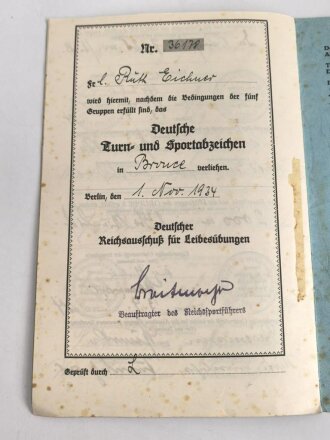 Nr. 36178
Frl. Ruth Eichner
wird hiermit, nachdem die Bedingungen der fünf
Gruppen erfüllt sind, das
Deutsche
Turn- und Sportabzeichen
in Bronce verliehen.
Berlin, den 1. Nov. 1934
Deutscher
Reichsausschuß für Leibesübungen
Breitmeyer
Beauftragter des Reichssportführers
Geprüft durch L